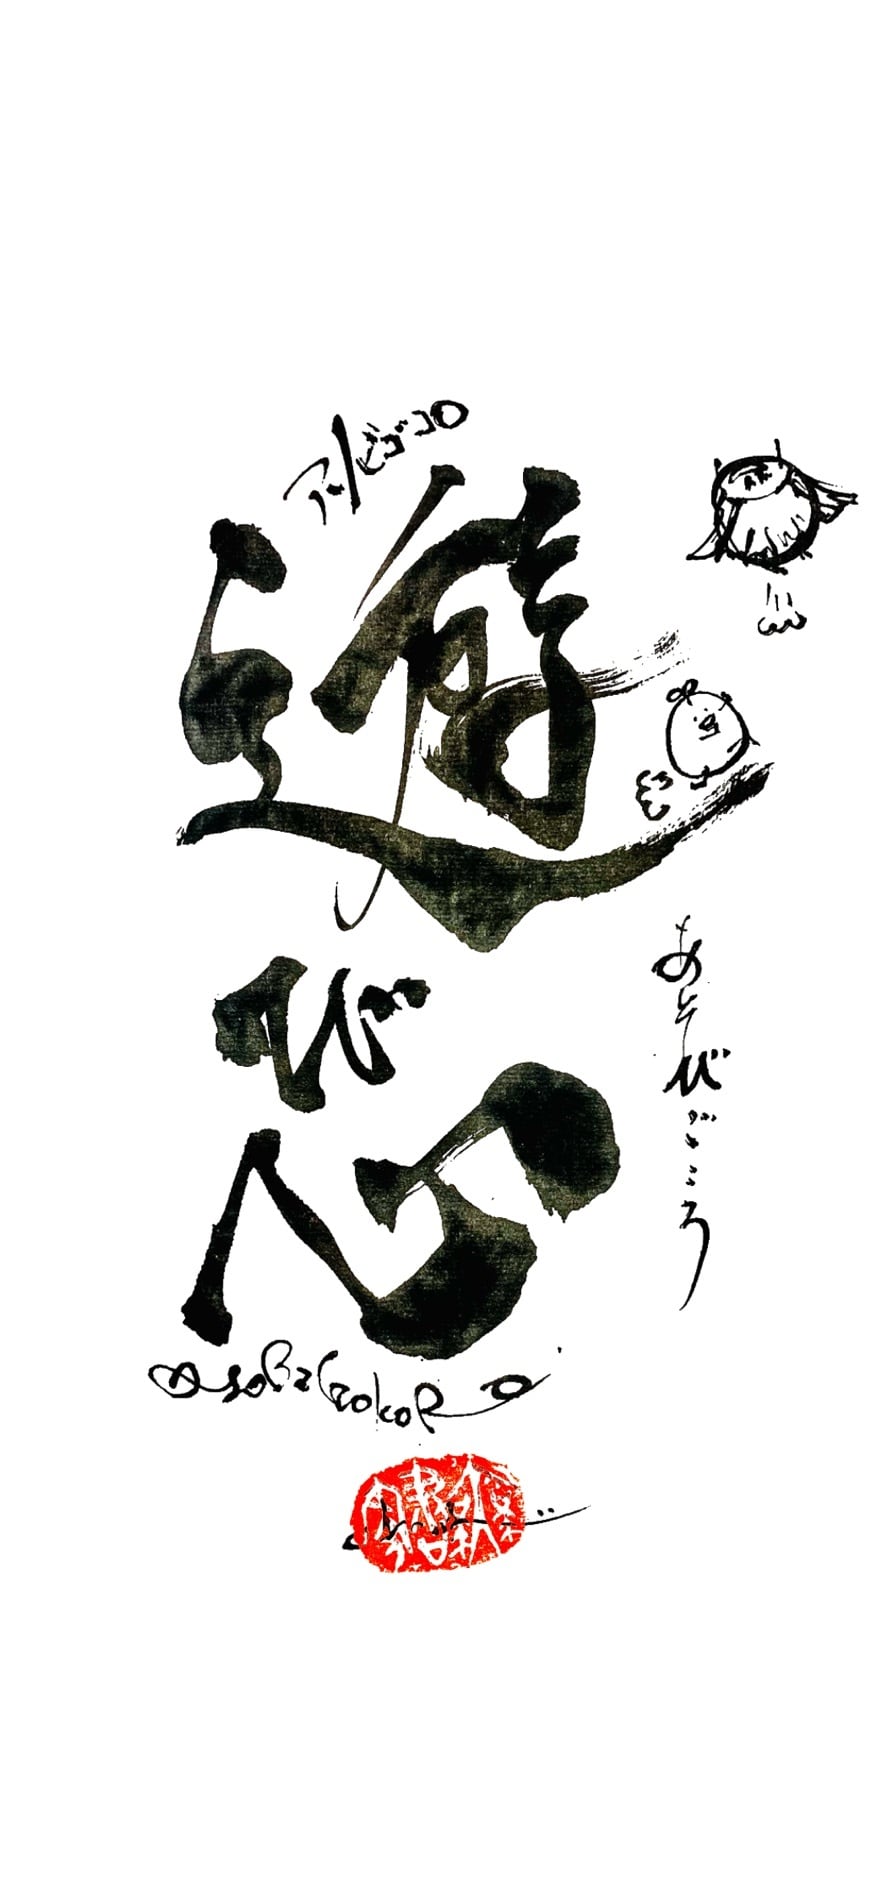 アソビゴコロ
遊
び
心
あそびごころ
asoBiGokoRo